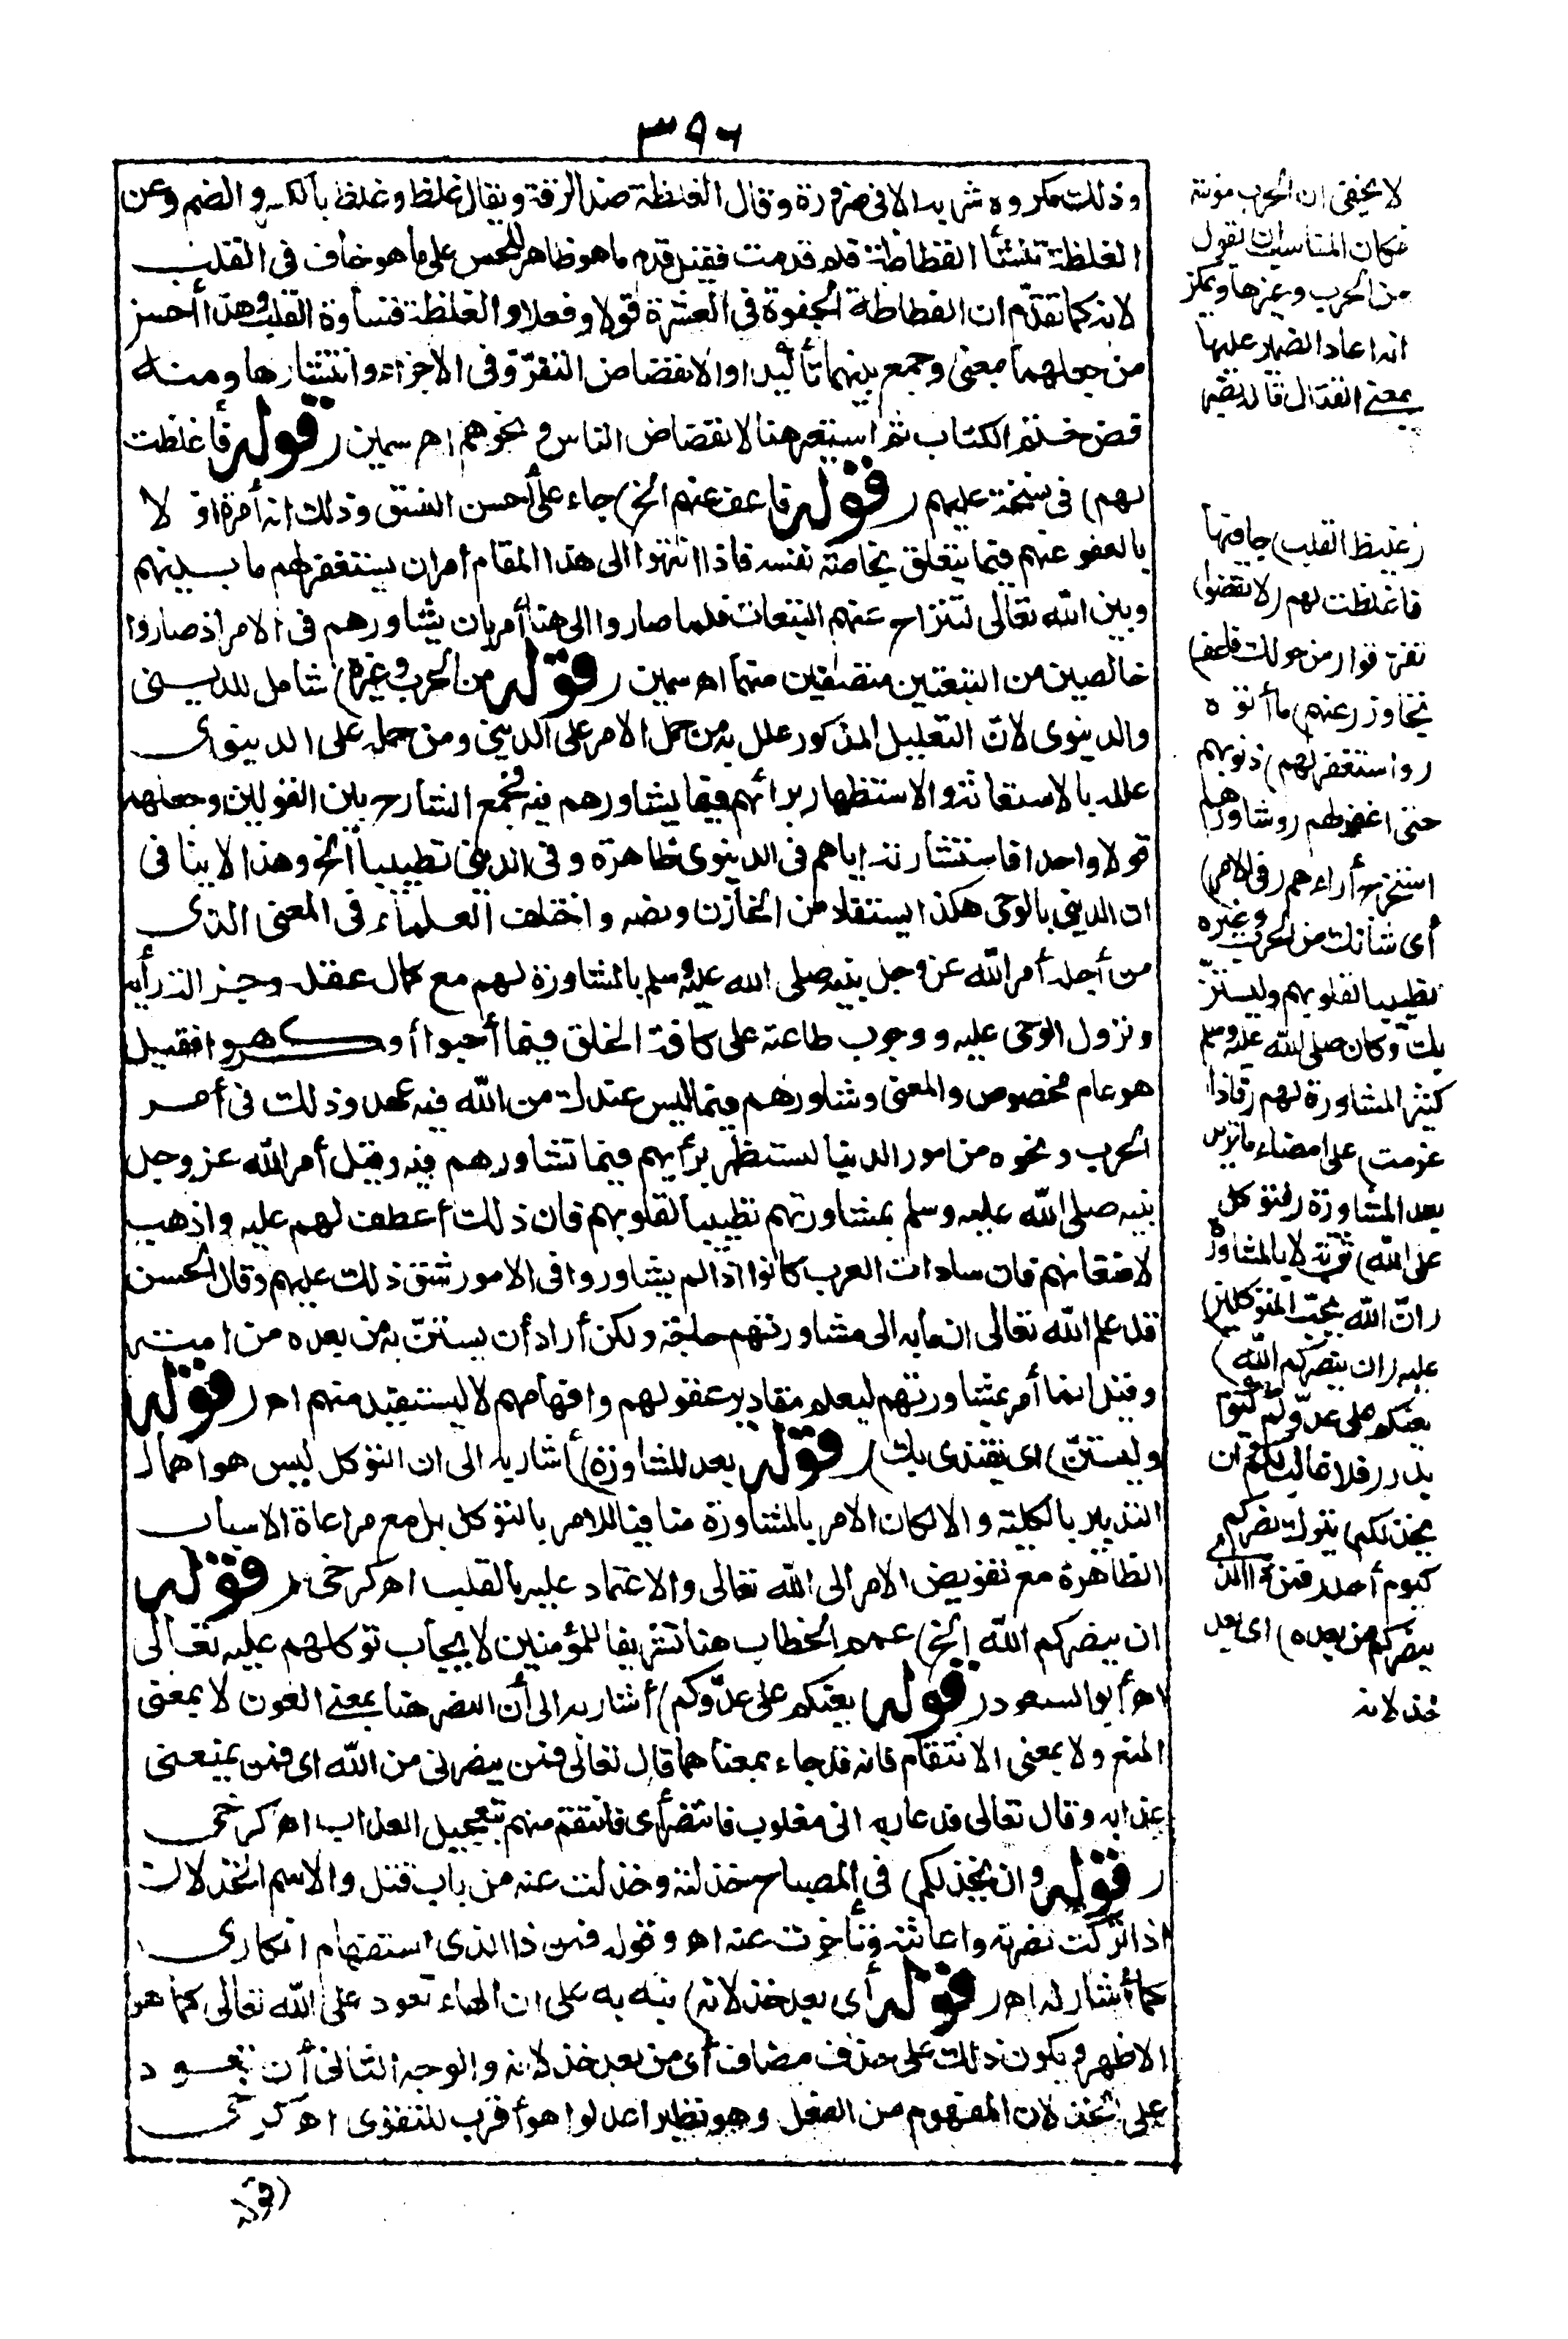 ٣٩٦
وذلك مكروه شديد الا فى ضرورة وقال الغلظة ضد الرقة ويقال غلظ وغلظ بالكسر والضم وعن
الغلظة تنشأ الفظاظة فلم قدمت فقيل قدم ما هو ظاهر للحس على ما هو خاف فى القلب
لانه كما تقدّم ان الفظاظة الجفوة فى العشرة قولا وفعلا والغلظة قساوة القلب وهذا أحسن
من جعلهما بمعنى وجمع بينهما تأكيدا والانفضاض التفرّق فى الاجزاء وانتشارها ومنه
فض ختم الكتاب ثم استعير هنا لانفضاض الناس ونحوهم اهـ سمين (قوله فأغلظت
لهم) فى نسخة عليهم (قوله فاعف عنهم الخ) جاء على أحسن النسق وذلك انه أمر أولا
بالعفو عنهم فيما يتعلق بخاصة نفسه فاذا انتهوا الى هذا المقام أمر ان يستغفر لهم ما بينهم
وبين الله تعالى لتنزاح عنهم التبعات فلما صاروا الى هنا أمر بان يشاورهم فى الامر اذ صاروا
خالصين من التبعتين متصفين منهما اهـ سمين (قوله من الحرب وغيره) شامل للدينى
والدنيوى لانّ التعليل المذكور علل به من حمل الامر على الدينى ومن حمله على الدنيوى
علله بالاستعانة والاستظهار برأيهم فيما يشاورهم فيه فجمع الشارح بين القولين وجعلهما
قولا واحدا فاستشارته اياهم فى الدنيوى ظاهرة وفى الدينى تطييبا الخ وهذا لا ينافى
ان الدينى بالوحى هكذا يستفاد من الخازن ونصه واختلف العلماء فى المعنى الذى
من أجله أمر الله عز وجل نبيه صلى الله عليه وسلم بالمشاورة لهم مع كمال عقله وجزالة رأيه
ونزول الوحى عليه ووجوب طاعته على كافة الخلق فيما أحبوا أو كرهوا فقيل
هو عام مخصوص والمعنى وشاورهم فيما ليس عندك من الله فيه عهد وذلك فى أمر
الحرب ونحوه من امور الدنيا لتستظهر برأيهم فيما تشاورهم فيه وقيل أمر الله عز وجل
نبيه صلى الله عليه وسلم بمشاورتهم تطييبا لقلوبهم فان ذلك أعطف لهم عليه واذهب
لاضغانهم فان سادات العرب كانوا اذا لم يشاوروا فى الامور شق ذلك عليهم وقال الحسن
قد علم الله تعالى ان ما به الى مشاورتهم حاجة ولكن أراد أن يستنّ به من بعده من امته
وقيل انما أمر بمشاورتهم ليعلم مقادير عقولهم وافهامهم لا ليستفيد منهم اهـ (قوله
وليستنّ) اى يقتدى بك) (قوله بعد المشاورة) أشار به الى ان التوكل ليس هو اهمال
التدبير بالكلية والا لكان الامر بالمشاورة منافيا للامر بالتوكل بل مع مراعاة الاسباب
الظاهرة مع تفويض الامر الى الله تعالى والاعتماد عليه بالقلب اهـ كرخى (قوله
ان ينصركم الله الخ) عمم الخطاب هنا تشريفا للمؤمنين لايجاب توكلهم عليه تعالى
اهـ أبو السعود (قوله يعنكم على عدّوكم) أشار به الى أن النصر هنا بمعنى العون لا بمعنى
المنع ولا بمعنى الانتقام فانه قد جاء بمعناهما قال تعالى فمن ينصرنى من الله اى فمن يمنعنى
عذابه وقال تعالى فدعا ربه انى مغلوب فانتصر أى فانتقم منهم بتعجيل العذاب اهـ كرخى
(قوله وان يخذلكم) فى المصباح خذلته وخذلت عنه من باب قتل والاسم الخذلان
اذا تركت نصرته واعانته وتأخرت عنه اهـ وقوله فمن ذا الذى استفهام انكارى
كما أشار له اهـ (قوله أى بعد خذلانه) نبه به على ان الهاء تعود على الله تعالى كما هو
الاظهر ويكون ذلك على حذف مضاف أى من بعد خذلانه والوجه الثانى أن تعود
على الخذلان المفهوم من الفعل وهو نظير اعدلوا هو أقرب للتقوى اهـ كرخى
(قوله
لا يخفى ان الحرب مؤنثة
فكان المناسب ان يقول
من الحرب وغيرها ويمكن
انه اعاد الضمير عليها
بمعنى القتال قاله نصر
(غليظ القلب) جافيا
فاغلظت لهم (لانفضوا)
تفرقوا (من حولك فاعف)
تجاوز (عنهم) ما أتوه
(واستغفر لهم) ذنوبهم
حتى اغفر لهم (وشاورهم)
استخرج أراءهم (فى الامر)
أى شأنك من الحرب وغيره
تطييبا لقلوبهم وليستنّ
بك وكان صلى الله عليه وسلم
كثير المشاورة لهم (فاذا
عزمت) على امضاء ما تريد
بعد المشاورة (فتوكل
على الله) ثق به لا بالمشاورة
(انّ الله يحبّ المتوكلين)
عليه (ان ينصركم الله)
يعنكم على عدّوكم كيوم
بدر (فلا غالب لكم وان
يخذلكم) بترك نصركم
كيوم أحد (فمن ذا الذى
ينصركم من بعده) اى بعد
خذلانه